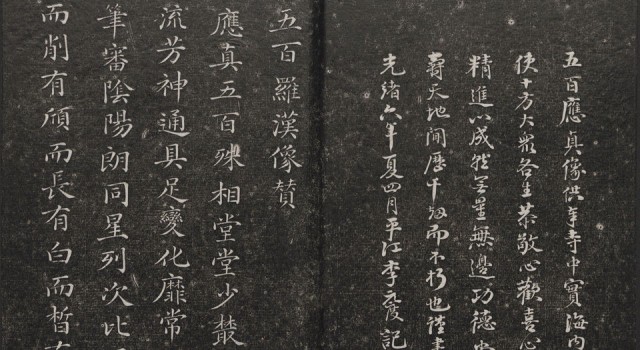 五百應真像供奉寺中實海內
使十方大眾各生恭敬心歡喜心
精進以成就無量無邊功德
壽天地閒歷千劫而不朽也謹書
光緒六年夏四月平江李
記
五百羅漢像贊
應真五百殊相堂堂少叢
流芳神通具足變化靡常
筆審陰陽朗同星列次比
而削有頎而長有白而晳有